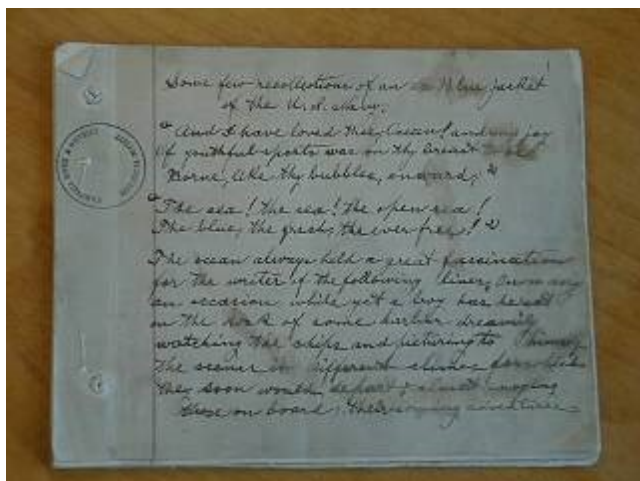 Some few recollections of an ex blue jacket
of the U.S. Navy.
"And I have loved thee, Ocean! and my joy
of youthful sports was on thy breast to be
Borne, like thy bubbles, onward;"
"The sea! the sea! the open sea!
The blue, the fresh, the ever free!"
The ocean always held a great fascination
for the writer of the following lines, On many
an occasion while yet a boy has he sat
on the dock of some harbor dreamily
watching the ships and picturing to himself
the scenes in different climes for which
they soon would depart, almost
those on board, their roving adventures